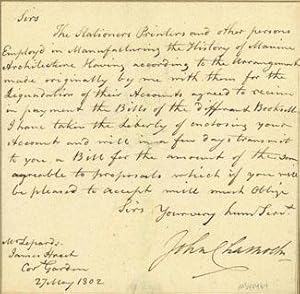 Sirs
The Stationers Printers and other persons
Employ'd in Manufacturing the History of Marine
Architecture Having according to the Arrangement
made originally by me with them for the
Liquidation of their Accounts agreed to receive
in payment the Bills of the different Booksellers
I have taken the Liberty of enclosing your
Account and will in a few days transmit
to you a Bill for the amount of the same
agreable to proposals which if you will
be pleased to accept will much Oblige
Sirs Your very humb Servt
John Charnock
Mr Lepards
James Street
Covt Garden
27 May 1802